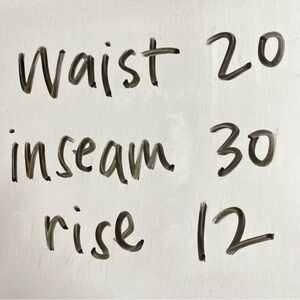 Waist 20
inseam 30
rise 12